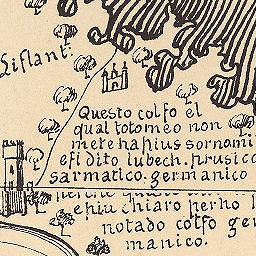 Liflant.
Questo colfo el
qual totomeo non
mete ha pius sornomi
e si dito lubech. prusico
sarmatico. germanico
e piu chiaro perho l
notado colfo ger
manico.